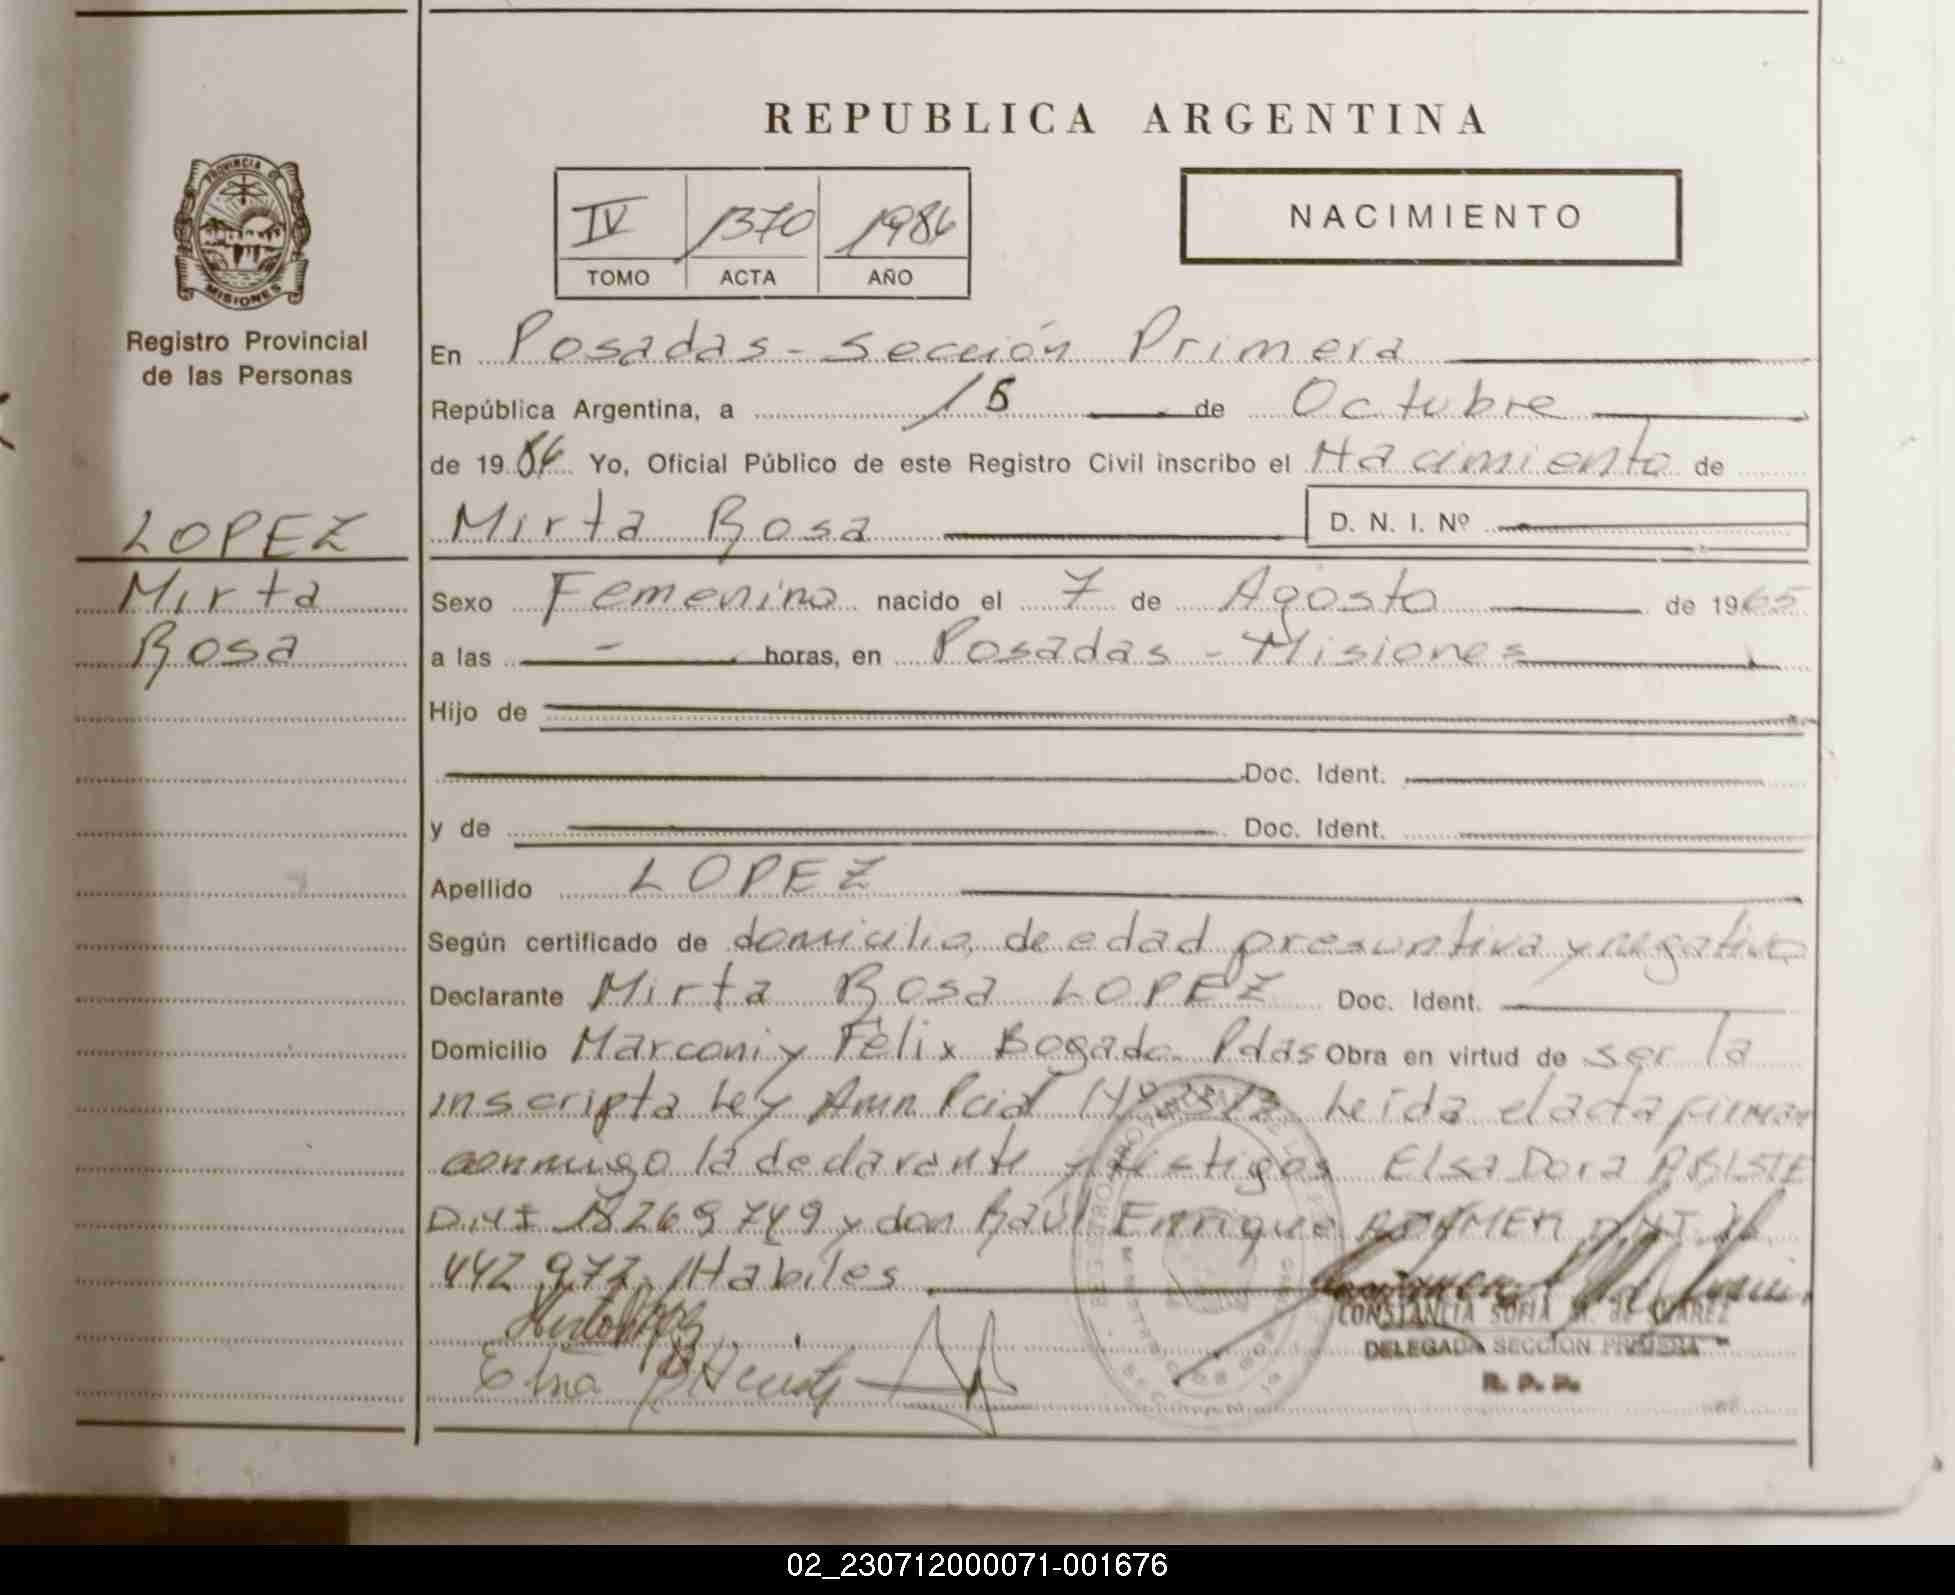 REPUBLICA ARGENTINA
PROVINCIA DE
MISIONES
Registro Provincial
de las Personas
IV 1370 1986
TOMO ACTA AÑO
NACIMIENTO
En Posadas - Sección Primera
República Argentina, a 15 de Octubre
de 19 86 Yo, Oficial Público de este Registro Civil inscribo el Nacimiento de
LOPEZ
Mirta
Rosa
Mirta Rosa D. N. I. Nº
Sexo Femenino nacido el 7 de Agosto de 1965
a las - horas, en Posadas - Misiones
Hijo de
Doc. Ident.
y de Doc. Ident.
Apellido LOPEZ
Según certificado de domicilio, de edad presuntiva y negativo
Declarante Mirta Rosa LOPEZ Doc. Ident.
Domicilio Marconi y Félix Bogado Pdas Obra en virtud de ser la
inscripta Ley Amn Pcial Nº leida el acta firman
conmigo la declarante y testigos Elsa Dora
D.N.I 18269749 y don Raúl Enrique D.N.I.
442 972 Habiles
CONSTANCIA SOFIA M. de SUAREZ
DELEGADA SECCION PRIMERA
R. P. P.
02_230712000071-001676